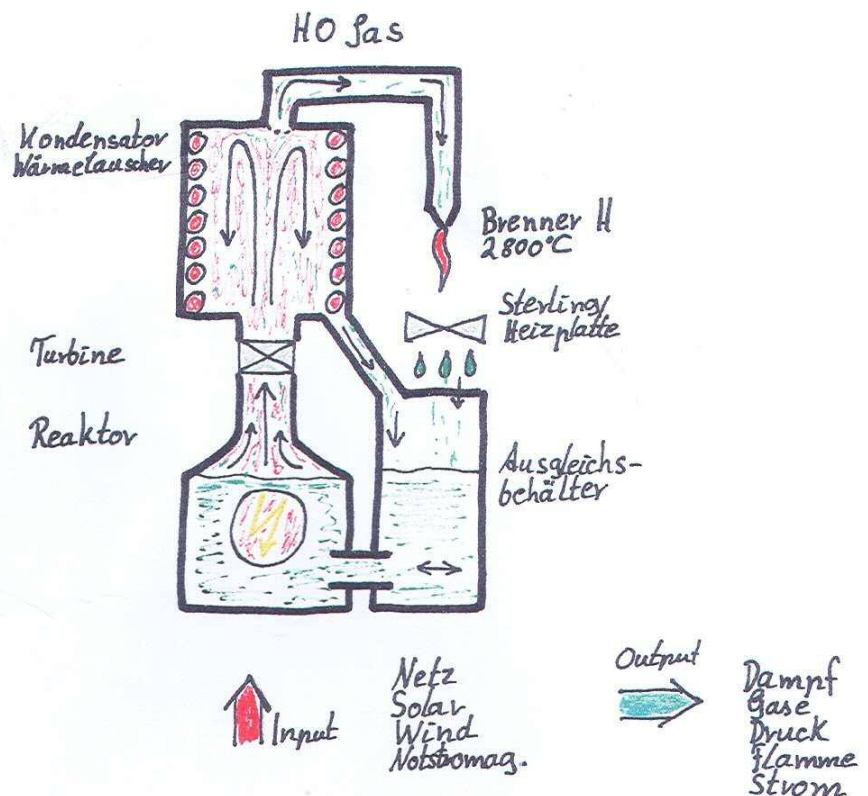 HO Gas
Kondensator
Wärmetauscher
Brenner H
2800°C
Sterling/
Heizplatte
Turbine
Reaktor
Ausgleichs-
behälter
Input
Netz
Solar
Wind
Notstromag.
Output
Dampf
Gase
Druck
Flamme
Strom